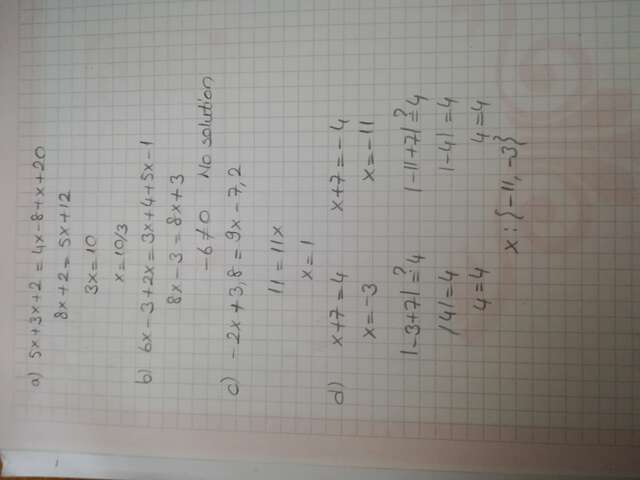 a) 5x+3x+2=4x-8+x+20
8x+2=5x+12
3x=10
x=10/3
b) 6x-3+2x=3x+4+5x-1
8x-3=8x+3
-6≠0 No solution
c) -2x+3,8=9x-7,2
11=11x
x=1
d) x+7=4 x+7=-4
x=-3 x=-11
|-3+7|≟4 |-11+7|≟4
|4|=4 |-4|=4
4=4 4=4
x:{-11,-3}